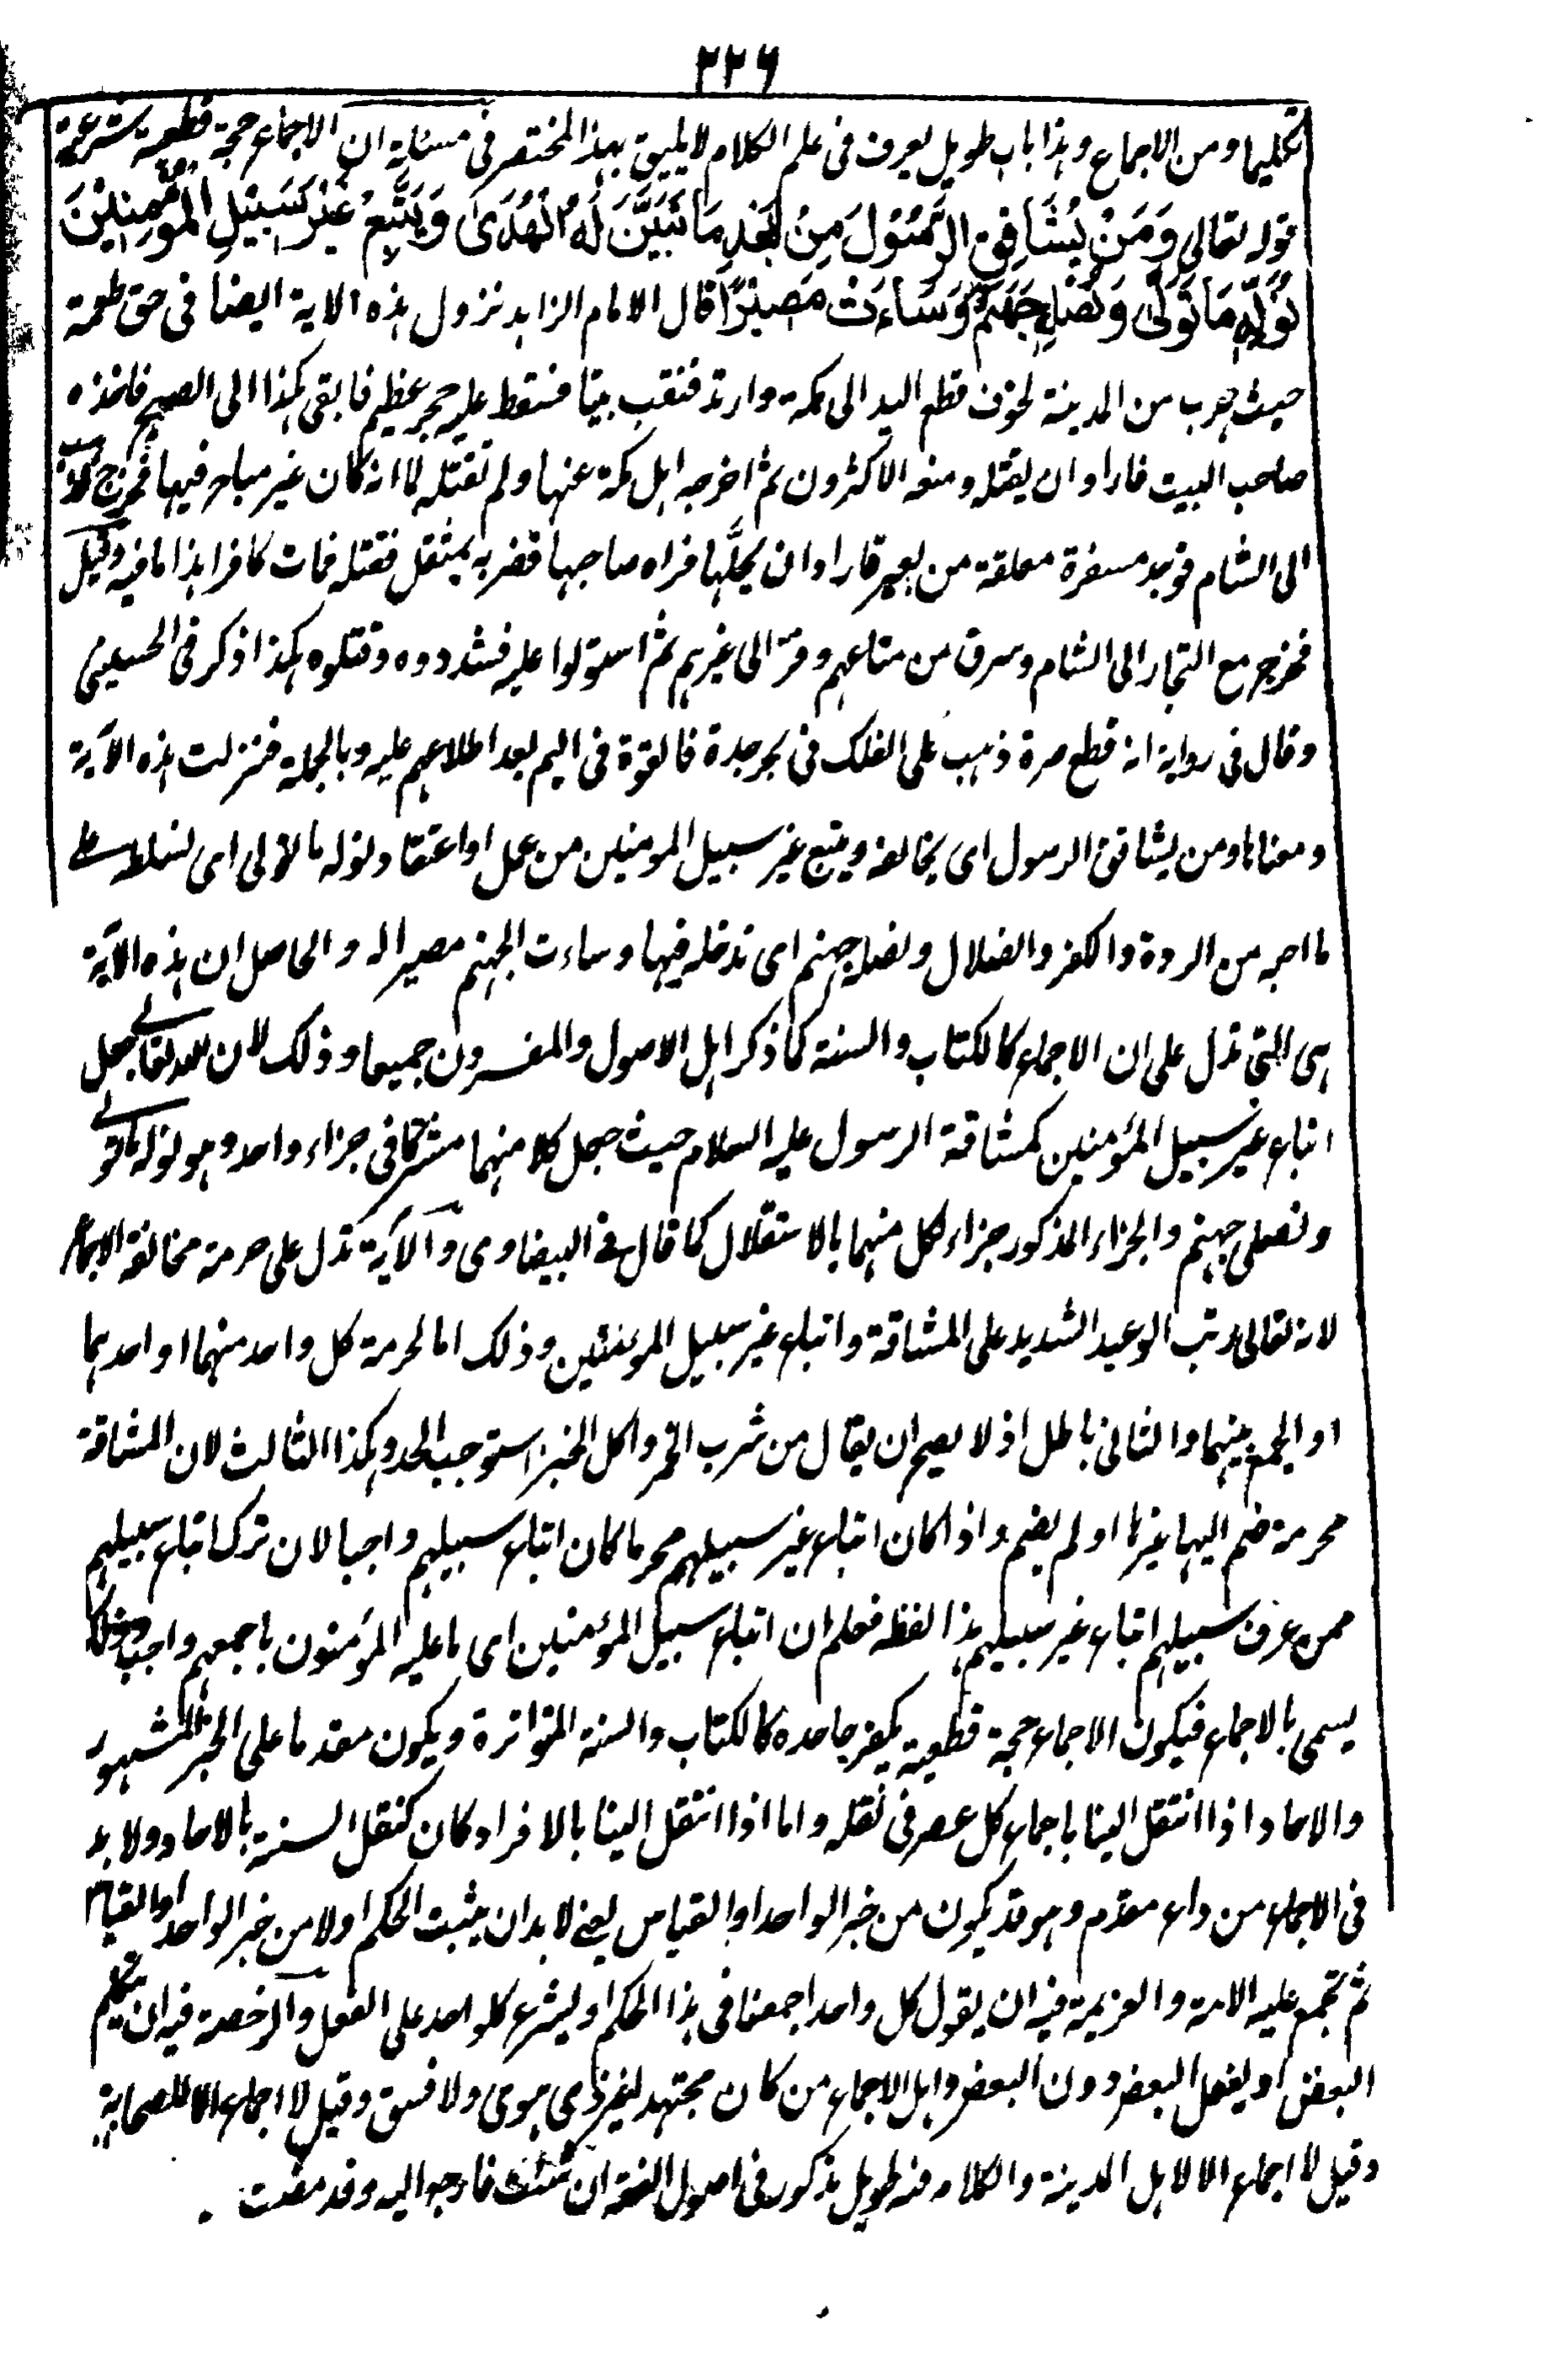 ٢٢٦
تكليما ومن الاجماع وهذا باب طويل يعرف فى علم الكلام لا يليق بهذا المختصر فى مسئلة ان الاجماع حجة قطعية شرعية
قوله تعالى وَمَنْ يُشَاقِقِ الرَّسُوْلَ مِنْ بَعْدِ مَا تَبَيَّنَ لَهُ الْهُدَىٰ وَيَتَّبِعْ غَيْرَ سَبِيْلِ الْمُؤْمِنِيْنَ
نُوَلِّهٖ مَا تَوَلّٰى وَنُصْلِهٖ جَهَنَّمَ وَسَاءَتْ مَصِيْرًا قال الامام الزاهد نزول هذه الاية ايضا فى حق طعمة
حيث هرب من المدينة لخوف قطع اليد الى مكة وارتد فنقب بيتا فسقط عليه حجر عظيم فابقى هكذا الى الصبح فاخذه
صاحب البيت فاراد ان يقتله ومنعه الاكثرون ثم اخرجه اهل مكة عنها ولم تقتله لما انه كان غير مباح فيها فخرج
الى الشام فوجد مسفرة معلقة من بعير فاراد ان يحلّها فراه صاحبها فضربه بمثقل فقتله فمات كافرا هذا ما فيه وقيل
فخرج مع التجار الى الشام وسرق من متاعهم وفرّ الى غيرهم ثم استولوا عليه فشددوه وقتلوه هكذا ذكر فى الحسينى
وقال فى رواية انه قطع صرة ذهب على الفلك فى بحر جدة فالقوة فى اليم بعد اطلاعهم عليه وبالجملة فنزلت هذه الآية
ومعناها ومن يشاقق الرسول اى يخالفه ويتبع غير سبيل المومنين من عمل او اعتقاد نوله ما تولى اى نسلطه على
ما احبه من الردة والكفر والضلال ونصله جهنم اى ندخله فيها وساءت الجهنم مصيرا له والحاصل ان هذه الآية
هى التى تدل على ان الاجماع كالكتاب والسنة كما ذكر اهل الاصول والمفسرون جميعا وذلك لان الله تعالى جعل
اتباع غير سبيل المؤمنين كمشاقة الرسول عليه السلام حيث جعل كلا منهما مشتركا فى جزاء واحد وهو نوله ما تولى
ونصلى جهنم والجزاء المذكور جزاء لكل منهما بالاستقلال كما قال فى البيضاوى والآية تدل على حرمة مخالفة الاجماع
لانه تعالى رتب الوعيد الشديد على المشاقة واتباع غير سبيل المومنين وذلك اما لحرمة كل واحد منهما او احدهما
او الجمع بينهما والثانى باطل اذ لا يصح ان يقال من شرب الخمر واكل الخبز استوجب الحد وهكذا الثالث لان المشاقة
محرمة ضم اليها غيرها او لم يضم واذا كان اتباع غير سبيلهم محرما كان اتباع سبيلهم واجبا لان ترك اتباع سبيلهم
ممن عرف سبيلهم اتباع غير سبيلهم هذا لفظه فعلم ان اتباع سبيل المؤمنين اى ما عليه المؤمنون باجمعهم واجب وذلك
يسمى بالاجماع فيكون الاجماع حجة قطعية يكفر جاحده كالكتاب والسنة المتواترة ويكون مقدما على الخبر المشهور
والاحاد اذا انتقل الينا باجماع كل عصر فى نقله واما اذا انتقل الينا بالافراد كان كنقل السنة بالاحاد ولا بد
فى الاجماع من داع مقدم وهو قد يكون من خبر الواحد او القياس يعنى لا بد ان يثبت الحكم اولا من خبر الواحد او القياس
ثم تجمع عليه الامة والعزيمة فيه ان يقول كل واحد اجمعنا فى هذا الحكم او ليشرع كلواحد على الفعل والرخصة فيه ان يتكلم
البعض او يفعل البعض دون البعض واهل الاجماع من كان مجتهد لغير ذى هوى ولا فسق وقيل لا اجماع الا للصحابة
وقيل لا اجماع الا لاهل المدينة والكلام فيه طويل مذكور فى اصول الفقه ان شئت فارجع اليه وقد مضت